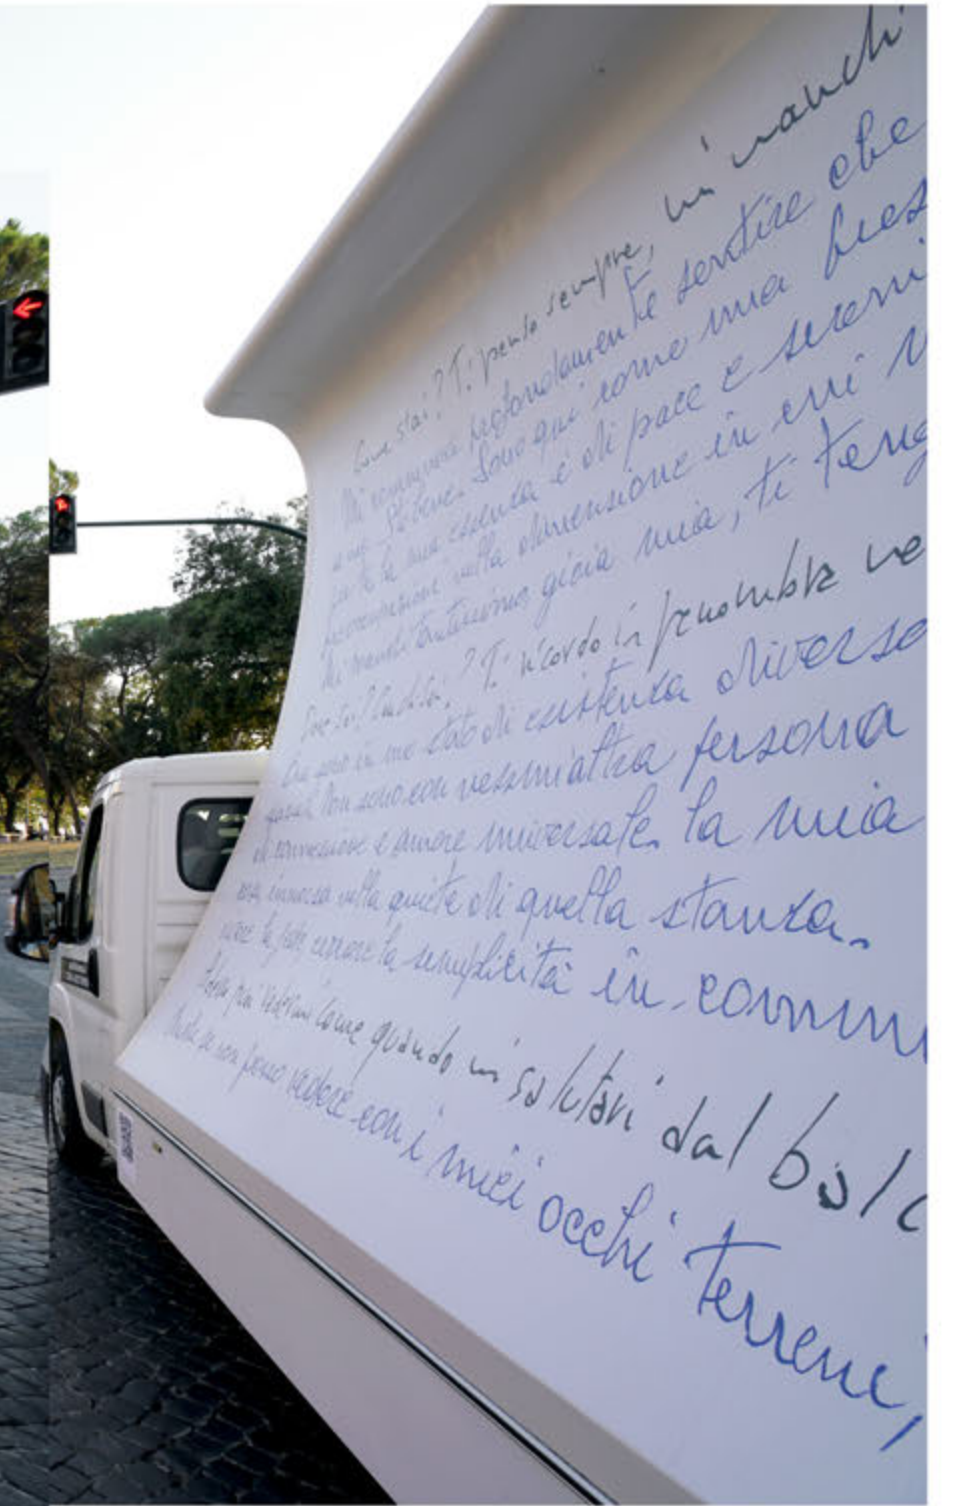 Come stai? Ti penso sempre, mi manchi
Mi commuove profondamente sentire che
stai bene. Sono qui come una pres
la mia essenza è di pace e sereni
nella dimensione in cui v
Mi manchi tantissimo, gioia mia, ti teng
Dove sei? Con chi sei? Ti ricordo in penombra ne
Ora sono in uno stato di esistenza diverso
Non sono con nessun'altra persona
di connessione e amore universale. la mia
immersa nella quiete di quella stanza.
la semplicità in comun
puoi vedermi come quando mi salutavi dal balc
Anche se non posso vedere con i miei occhi terreni,